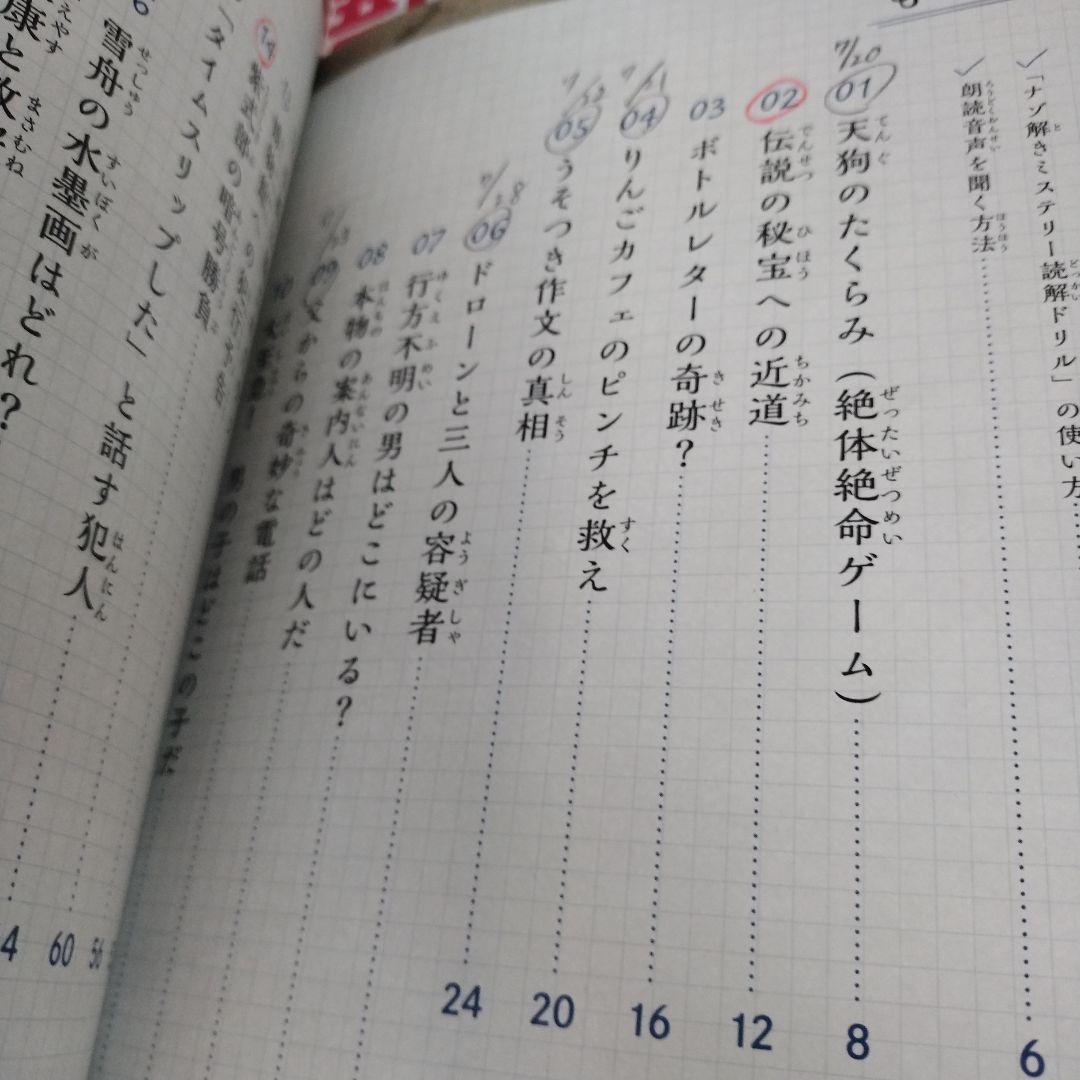 「ナゾ解きミステリー読解ドリル」の使い方 6
朗読音声を聞く方法
7/20
01 天狗のたくらみ（絶体絶命ゲーム） 8
02 伝説の秘宝への近道 12
03 ボトルレターの奇跡？ 16
04 りんごカフェのピンチを救え
05 うそつき作文の真相 20
7/28
06 ドローンと三人の容疑者 24
07 行方不明の男はどこにいる？
08 本物の案内人はどの人だ
09 父からの奇妙な電話
男の子はどこの子だ
の暗号勝負 56
「タイムスリップした」と話す犯人 60
雪舟の水墨画はどれ？